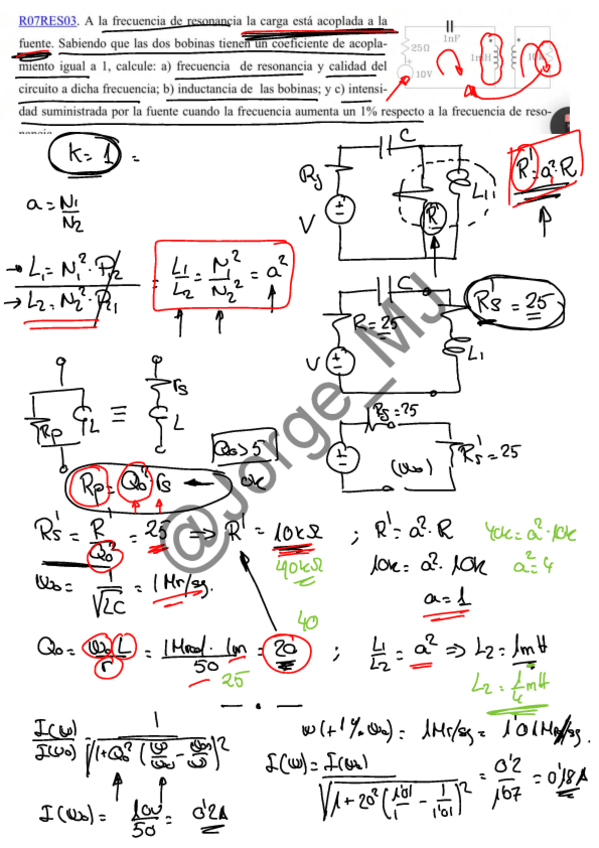 R07RES03. A la frecuencia de resonancia la carga está acoplada a la
fuente. Sabiendo que las dos bobinas tienen un coeficiente de acopla-
miento igual a 1, calcule: a) frecuencia de resonancia y calidad del
circuito a dicha frecuencia; b) inductancia de las bobinas; y c) intensi-
dad suministrada por la fuente cuando la frecuencia aumenta un 1% respecto a la frecuencia de reso-
25Ω
1nF
1mH
10V
K = 1 =
a = N1/N2
L1 = N1²·
L2 = N2²·
L1/L2 = N1²/N2² = a²
Rg
C
V
R'
L1
R' = a²·R
C
R = 25
V
L1
Rs' = 25
Rp
L
≡
rs
L
Q0 > 5
Rp = Q0²·rs ← ok
Rg = 25
(ω0)
Rs' = 25
@Jorge_MJ
Rs' = R'/Q0² = 25 ⇒ R' = 10kΩ ; R' = a²·R
40kΩ
10k = a²·10k
a = 1
40k = a²·10k
a² = 4
ω0 = 1/√LC = 1Mr/sg.
Q0 = ω0L/r = 1Mrad·1m/50 = 20 ; L1/L2 = a² ⇒ L2 = 1mH
25
40
L2 = 1/4 mH
I(ω)/I(ω0) = 1/√(1+Q0²(ω/ω0 - ω0/ω)²)
ω(+1%ω0) = 1Mr/sg = 1'01Mr/sg.
I(ω) = I(ω0)/√(1+20²(1'01/1 - 1/1'01)²) = 0'2/1'07 = 0'18A
I(ω0) = 10V/50 = 0'2A